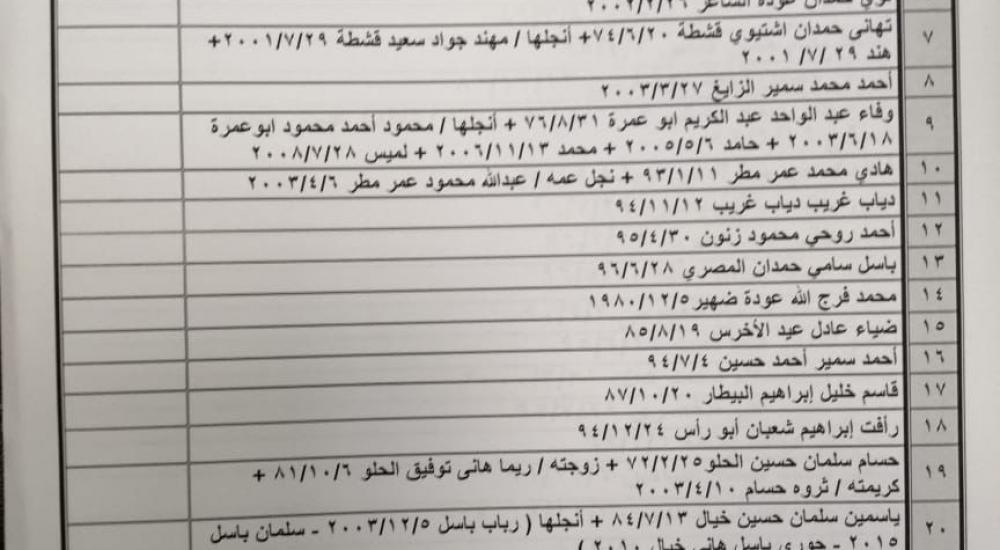 عودة الشاعر ٢٠٠٢/٢/٢٦
٧ تهانى حمدان اشتيوي قشطة ٧٤/٦/٢٠+ أنجلها / مهند جواد سعيد قشطة ٢٠٠١/٧/٢٩+
هند ٢٩ /٧/ ٢٠٠١
٨ أحمد محمد سمير الزايغ ٢٠٠٣/٣/٢٧
٩ وفاء عبد الواحد عبد الكريم ابو عمرة ٧٦/٨/٣١ + أنجلها / محمود أحمد محمود ابوعمرة
٢٠٠٣/٦/١٨ + حامد ٢٠٠٥/٥/٦ + محمد ٢٠٠٦/١١/١٣ + لميس ٢٠٠٨/٧/٢٨
١٠ هادي محمد عمر مطر ٩٣/١/١١ + نجل عمه / عبدالله محمود عمر مطر ٢٠٠٣/٤/٦
١١ دياب غريب دياب غريب ٩٤/١١/١٢
١٢ أحمد روحي محمود زنون ٩٥/٤/٣٠
١٣ باسل سامي حمدان المصري ٩٦/٦/٢٨
١٤ محمد فرج الله عودة ضهير ١٩٨٠/١٢/٥
١٥ ضياء عادل عيد الأخرس ٨٥/٨/١٩
١٦ أحمد سمير أحمد حسين ٩٤/٧/٤
١٧ قاسم خليل إبراهيم البيطار ٨٧/١٠/٢٠
١٨ رأفت إبراهيم شعبان أبو رأس ٩٤/١٢/٢٤
١٩ حسام سلمان حسين الحلو ٧٢/٢/٢٥ + زوجته / ريما هانى توفيق الحلو ٨١/١٠/٦ +
كريمته / ثروه حسام ٢٠٠٣/٤/١٠
٢٠ ياسمين سلمان حسين خيال ٨٤/٧/١٣ + أنجلها ( رباب باسل ٢٠٠٣/١٢/٥ - سلمان باسل
٢٠١٥ - حوري باسل هاني خيال ٢٠١٠ )